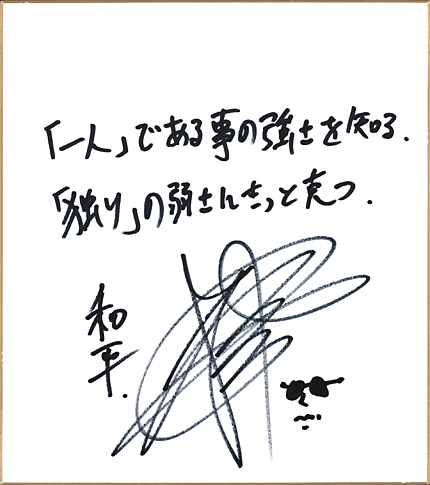 「一人」である事の強さを知る.
「独り」の弱さにきっと克つ.
和平.